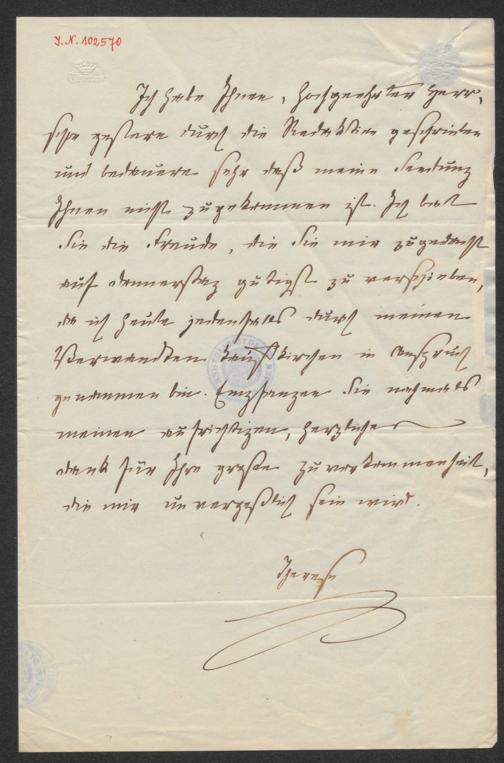 I.N. 102570
Ich habe Ihnen, hochgeehrter Herr,
schon gestern durch die Redaktion geschrieben
und bedauere sehr daß meine Sendung
Ihnen nicht zugekommen ist. Ich bat
Sie die Freude, die Sie mir zugedacht
auf donnerstag gütigst zu verschieben,
da ich heute jedenfalls durch meinen
Verwandten in Anspruch
genommen bin. Empfangen Sie nochmals
meinen aufrichtigen, herzlichen
dank für Ihre große Zuvorkommenheit,
die mir unvergeßlich sein wird.
Therese